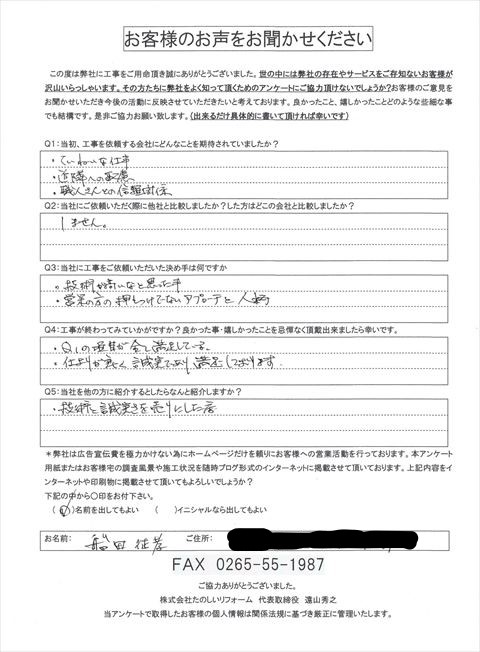 お客様のお声をお聞かせください
この度は弊社に工事をご用命頂き誠にありがとうございました。世の中には弊社の存在やサービスをご存知ないお客様が
沢山いらっしゃいます。その方たちに弊社をよく知って頂くためのアンケートにご協力頂けないでしょうか?お客様のご意見を
お聞かせいただき今後の活動に反映させていただきたいと考えております。良かったこと、嬉しかったことどのような些細な事
でも結構です。是非ご協力お願い致します。(出来るだけ具体的に書いて頂ければ幸いです)
Q1:当初、工事を依頼する会社にどんなことを期待されていましたか?
・ていねいな仕事
・近隣への配慮
・職人さんとの信頼関係
Q2:当社にご依頼いただく際に他社と比較しましたか?した方はどこの会社と比較しましたか?
しません。
Q3:当社に工事をご依頼いただいた決め手は何ですか
・技術が高いなと思った事
・営業の方の押しつけでないアプローチと人柄
Q4:工事が終わってみていかがですか?良かった事・嬉しかったことを忌憚なく頂戴出来ましたら幸いです。
・Q1の項目が全て満足している。
・仕上りが良く、誠実であり満足しております。
Q5:当社を他の方に紹介するとしたらなんと紹介しますか?
・技術と誠実さを売りにした店
*弊社は広告宣伝費を極力かけない為にホームページだけを頼りにお客様への営業活動を行っております。本アンケート
用紙またはお客様宅の調査風景や施工状況を随時ブログ形式のインターネットに掲載させて頂いております。上記内容をイ
ンターネットや印刷物に掲載させて頂いてもよろしいでしょうか?
下記の中から〇印をお付下さい。
( )名前を出してもよい ( )イニシャルなら出してもよい
お名前: 船田 ご住所:
FAX 0265-55-1987
ご協力ありがとうございました。
株式会社たのしいリフォーム 代表取締役 遠山秀之
当アンケートで取得したお客様の個人情報は関係法規に基づき厳正に管理いたします。